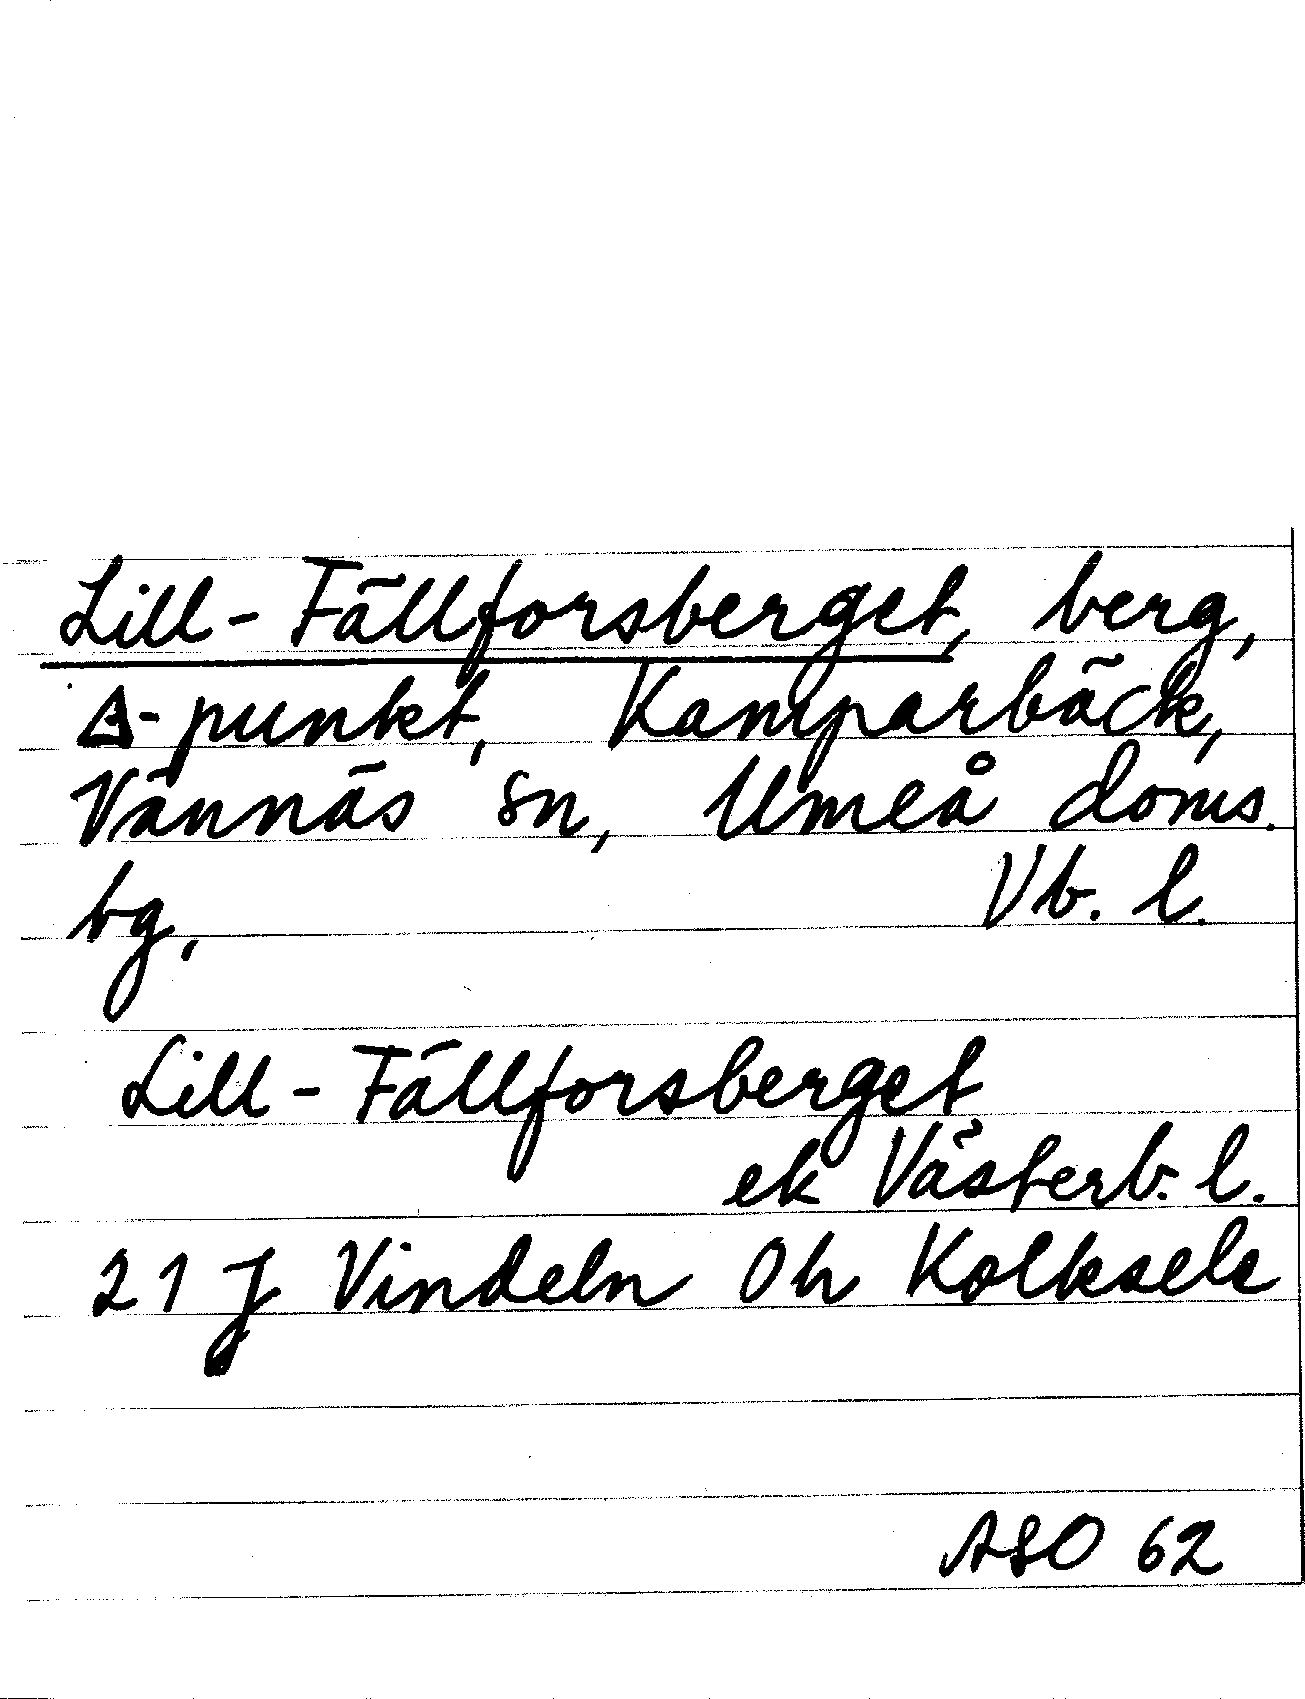 Lill-Fällforsberget, berg,
Δ-punkt, Kamparbäck,
Vännäs sn, Umeå doms.
bg, Vb. l.
Lill-Fällforsberget
ek Västerb. l.
21 J Vindeln 0h Kolksele
ASO 62